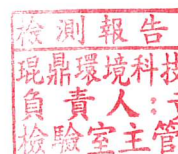 檢測報告
琨鼎環境科技
負責人：
檢驗室主管